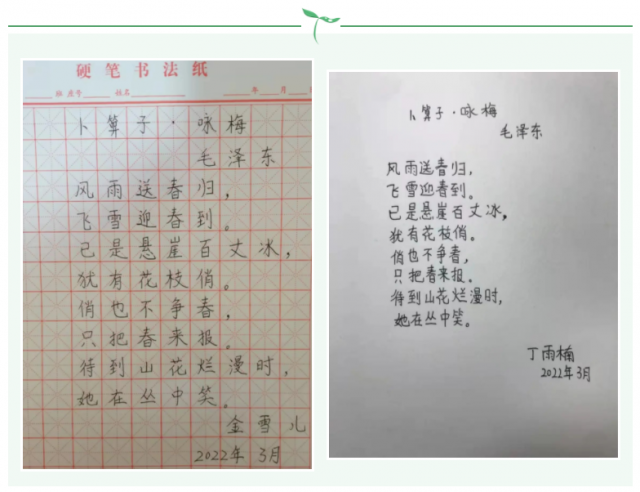 硬笔书法纸
班 座号 姓名 年 月
卜算子·咏梅
毛泽东
风雨送春归，
飞雪迎春到。
已是悬崖百丈冰，
犹有花枝俏。
俏也不争春，
只把春来报。
待到山花烂漫时，
她在丛中笑。
金雪儿
2022年3月
卜算子·咏梅
毛泽东
风雨送春归，
飞雪迎春到。
已是悬崖百丈冰，
犹有花枝俏。
俏也不争春，
只把春来报。
待到山花烂漫时，
她在丛中笑。
丁雨楠
2022年3月